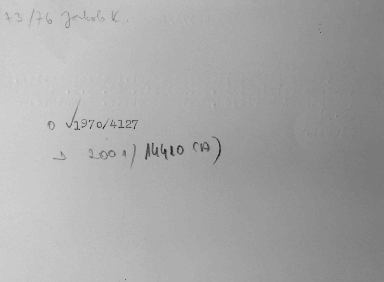 73/76 Jakob K.
0 √1970/4127
D 2001/14410 (A)